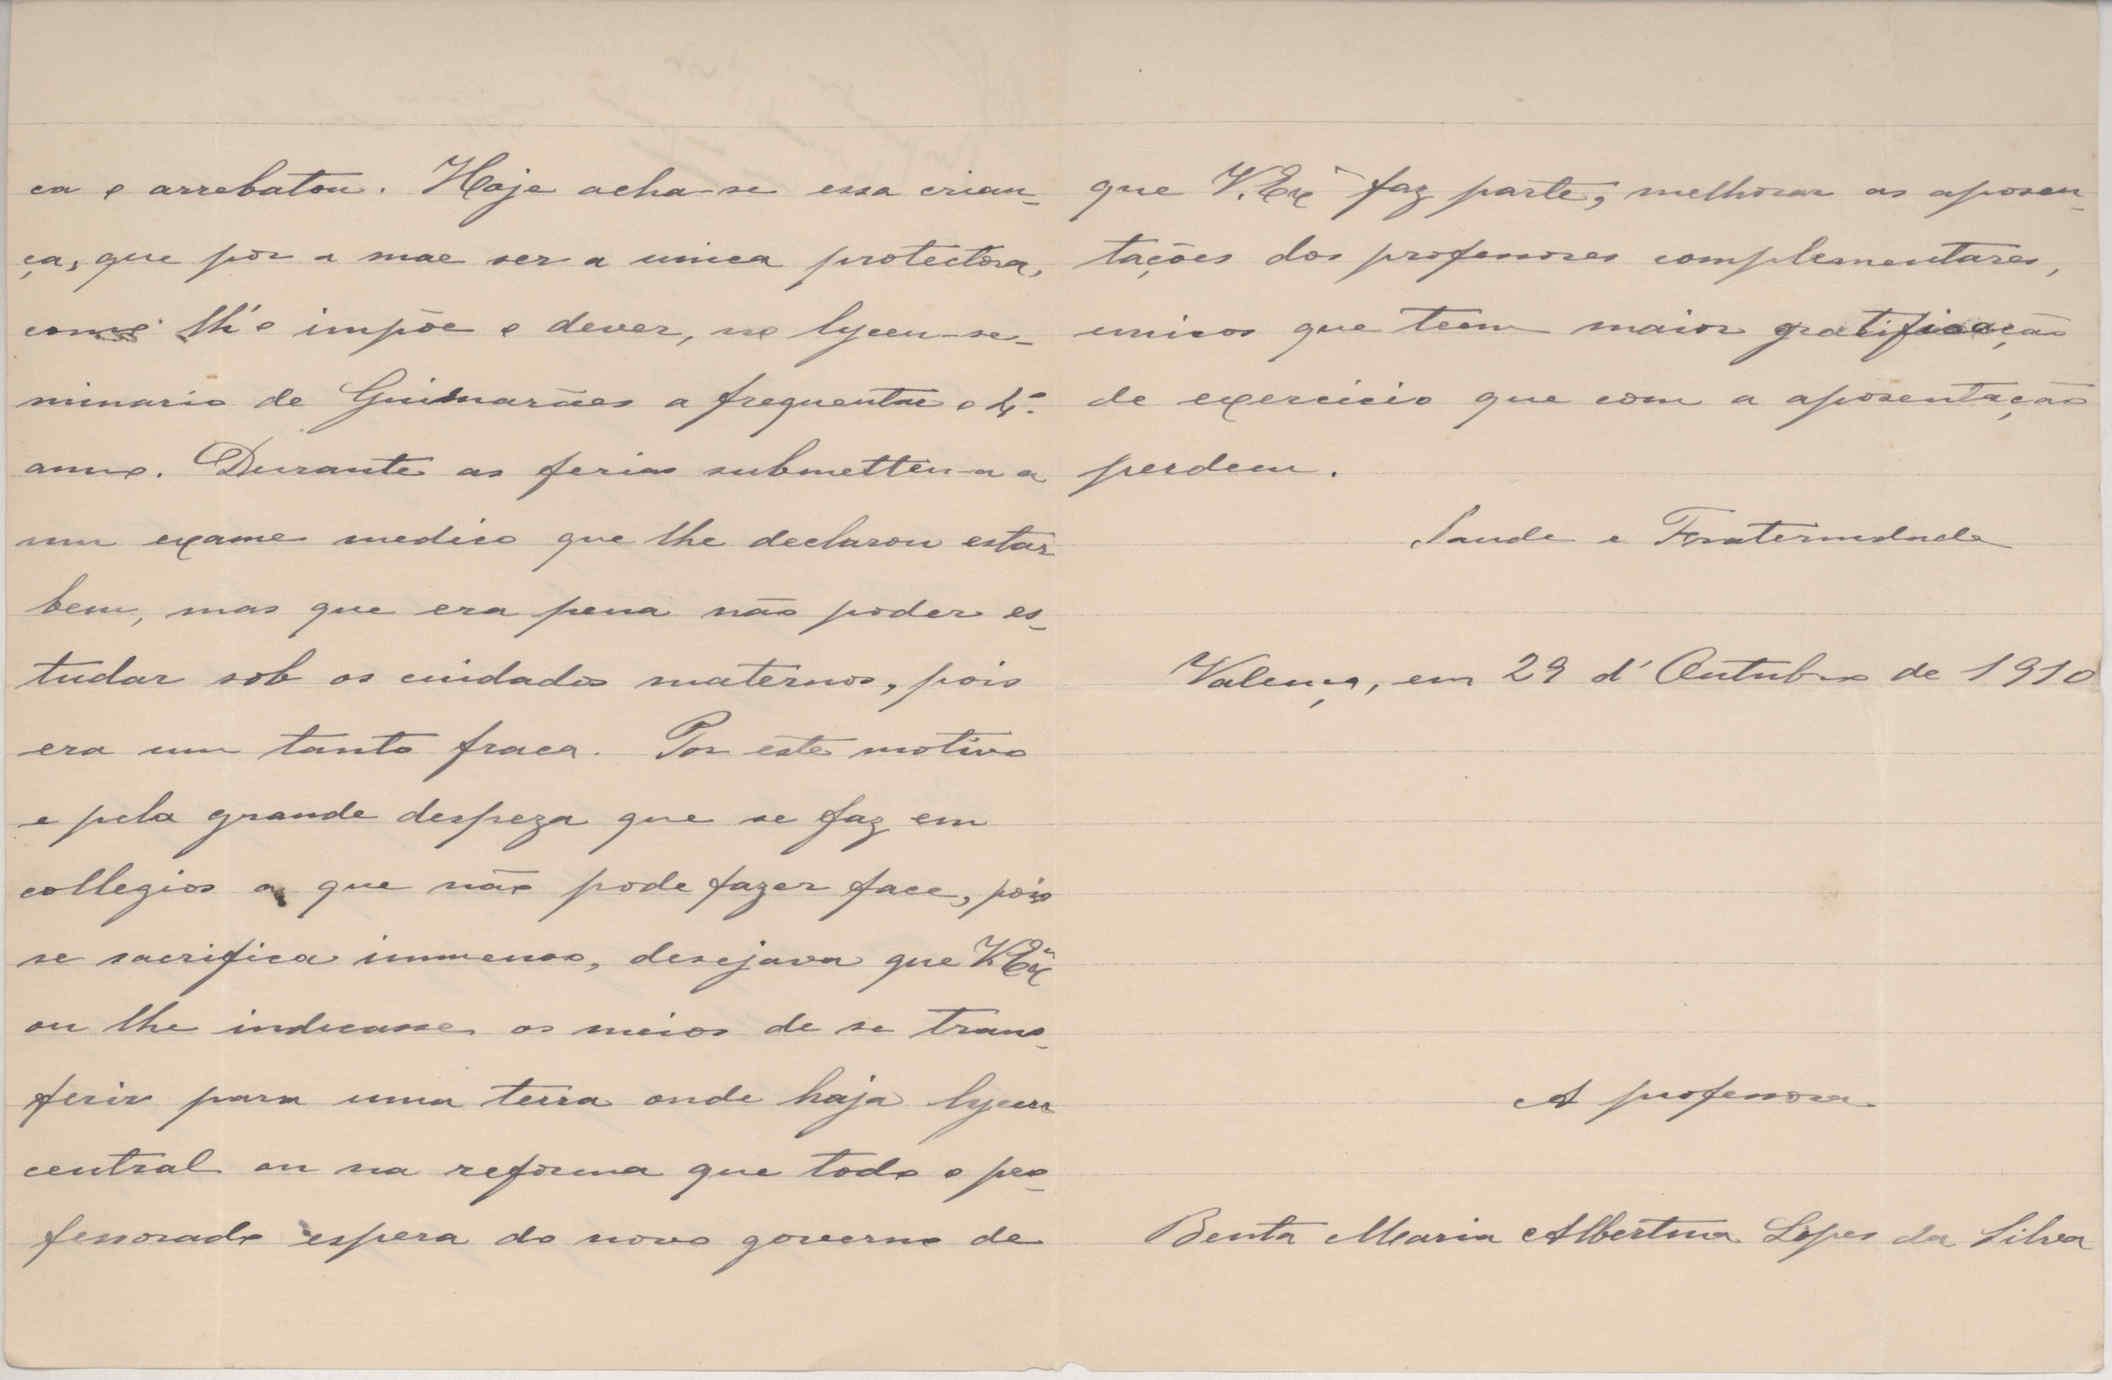 ca o arrebatou. Hoje acha-se essa crian-
ça, que por a mae ser a unica protectora,
como lh'o impõe o dever, no lyceu-se-
minario de Guimarães a frequentar o 4.º
anno. Durante as ferias submetteu-a a
um exame medico que lhe declarou estar
bem, mas que era pena não poder es-
tudar sob os cuidados maternos, pois
era um tanto fraca. Por este motivo
e pela grande despeza que se faz em
collegios a que não pode fazer face, pois
se sacrifica immenso, desejava que V. Exª
ou lhe indicasse os meios de se trans-
ferir para uma terra onde haja lyceu
central ou na reforma que todo o pro-
fessorado espera do novo governo de
que V. Exª faz parte, melhorar as aposen-
tações dos professores complementares,
unicos que teem maior gratificação
de exercicio que com a aposentação
perdem.
Saude e Fraternidade
Valença, em 29 d'Outubro de 1910
A professora
Benta Maria Albertina Lopes da Silva